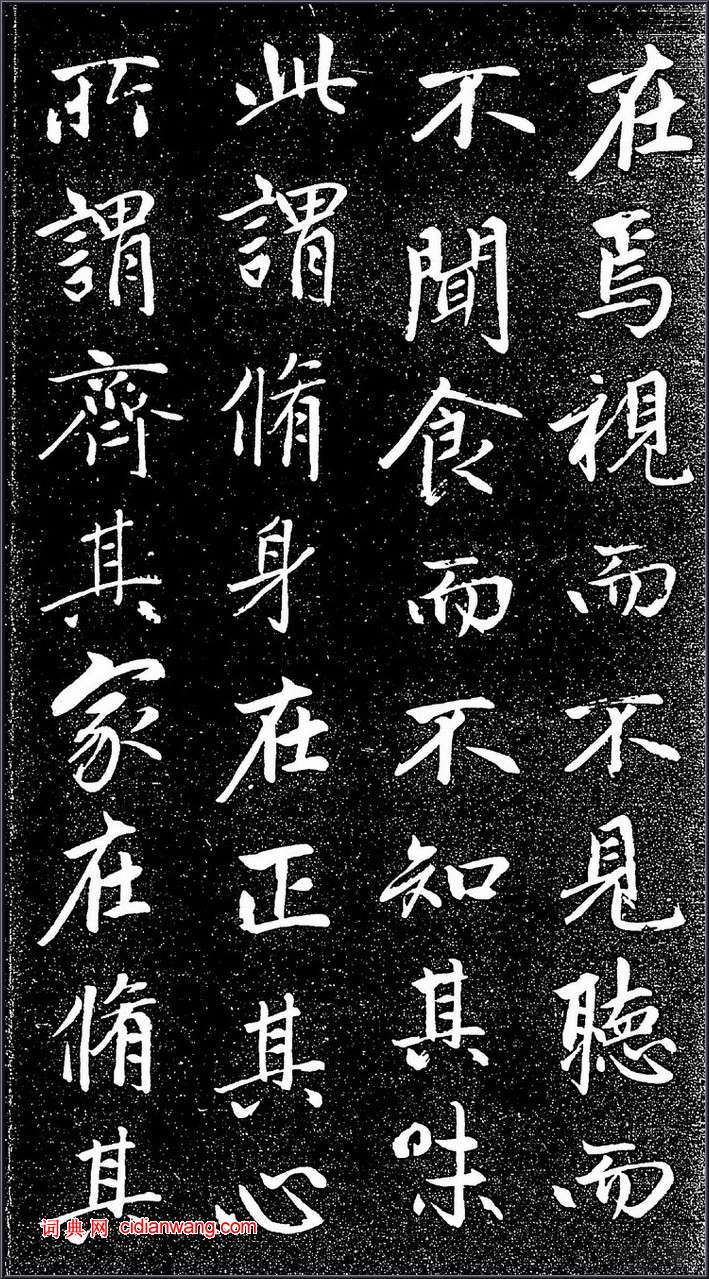 在焉視而不見聽而
不聞食而不知其味
此謂脩身在正其心
所謂齊其家在脩其
词典网 cidianwang.com